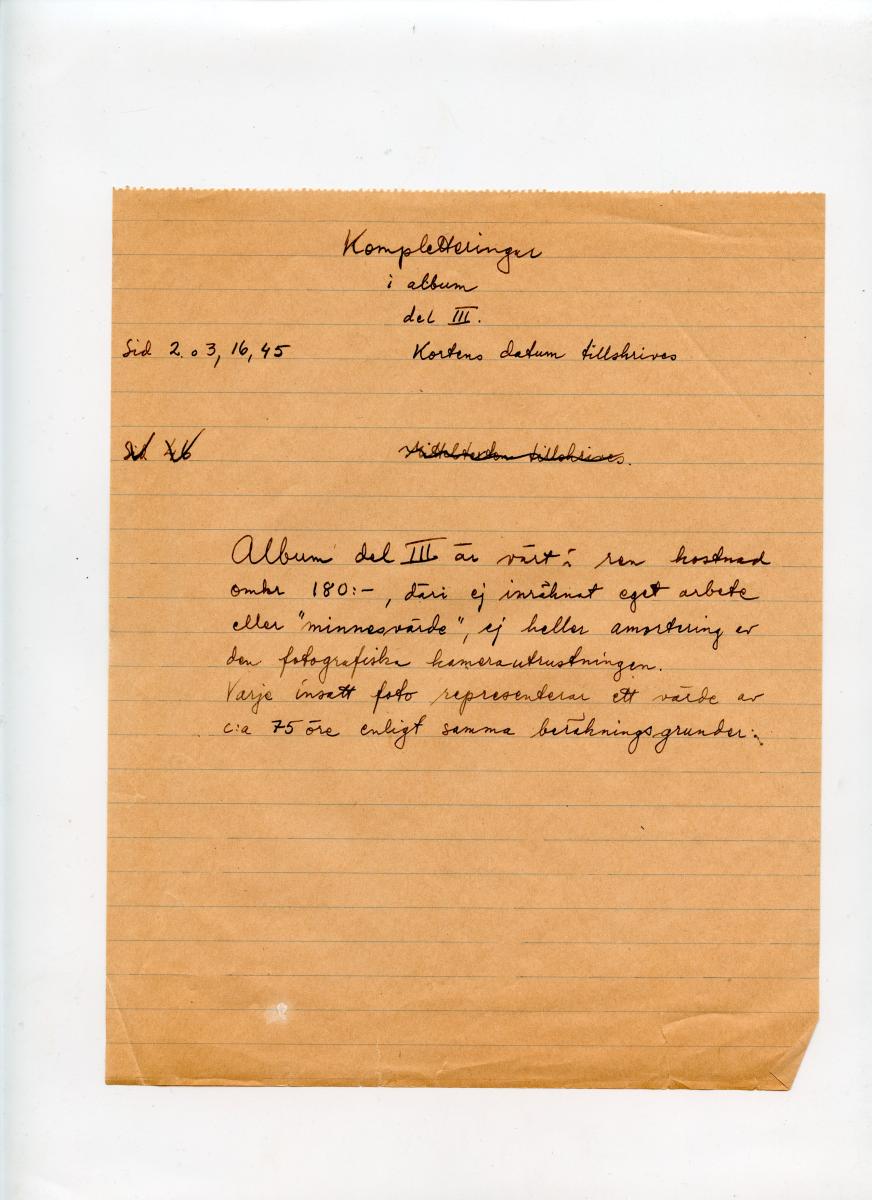 Kompletteringar
i album
del III.
Sid 2 o 3, 16, 45 Kortens datum tillskrives
Sid 46 tillskrives.
Album del III är värt i ren kostnad
omkr 180:-, däri ej inräknat eget arbete
eller "minnesvärde", ej heller amortering av
den fotografiska kamerautrustningen.
Varje insatt foto representerar ett värde av
c:a 75 öre enligt samma beräkningsgrunder.